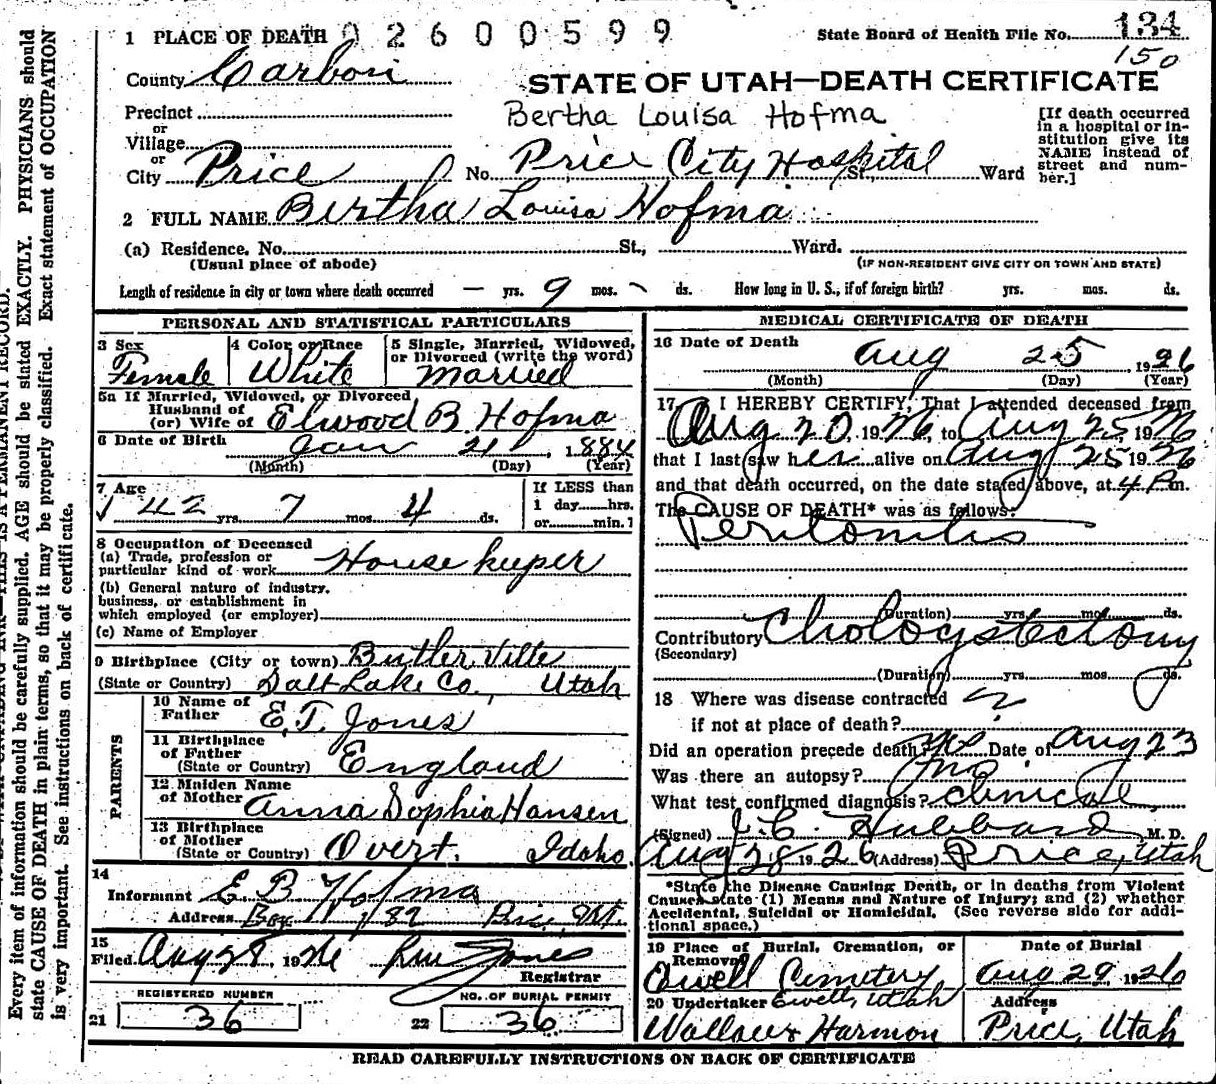 1 PLACE OF DEATH 02600599
State Board of Health File No. 134
150
County Carbon
STATE OF UTAH—DEATH CERTIFICATE
Precinct
or
Village
or
City Price
Bertha Louisa Hofma
No. Price City Hospital St., Ward
[If death occurred
in a hospital or in-
stitution give its
NAME instead of
street and num-
ber.]
2 FULL NAME Bertha Louisa Hofma
(a) Residence, No. St., Ward.
(Usual place of abode)
(IF NON-RESIDENT GIVE CITY OR TOWN AND STATE)
Length of residence in city or town where death occurred — yrs. 9 mos. ~ ds. How long in U. S., if of foreign birth? yrs. mos. ds.
PERSONAL AND STATISTICAL PARTICULARS
3 Sex
Female
4 Color or Race
White
5 Single, Married, Widowed,
or Divorced (write the word)
Married
5a If Married, Widowed, or Divorced
Husband of
(or) Wife of Elwood B Hofma
6 Date of Birth Jan 21, 1884
(Month) (Day) (Year)
7 Age
42 yrs. 7 mos. 4 ds.
If LESS than
1 day hrs.
or min.?
8 Occupation of Deceased
(a) Trade, profession or
particular kind of work House keeper
(b) General nature of industry,
business, or establishment in
which employed (or employer)
(c) Name of Employer
9 Birthplace (City or town) Butler Ville
(State or Country) Salt Lake Co., Utah
PARENTS
10 Name of
Father E. T. Jones
11 Birthplace
of Father
(State or Country) England
12 Maiden Name
of Mother Anna Sophia Hansen
13 Birthplace
of Mother
(State or Country) Overt. Idaho.
14
Informant E B Hofma
Address Box 182 Price, Ut.
15
Filed Aug 28, 1926 Jones
Registrar
REGISTERED NUMBER
21 36
NO. OF BURIAL PERMIT
22 36
MEDICAL CERTIFICATE OF DEATH
16 Date of Death Aug 25, 1926
(Month) (Day) (Year)
17 I HEREBY CERTIFY, That I attended deceased from
Aug 20, 1926, to Aug 25, 1926
that I last saw her alive on Aug 25 1926
and that death occurred, on the date stated above, at 4 P.m.
The CAUSE OF DEATH* was as follows:
Peritonitis
(Duration) yrs. mos. ds.
Contributory Cholocystectomy
(Secondary)
(Duration) yrs. mos. ds.
18 Where was disease contracted ?
if not at place of death?
Did an operation precede death? yes Date of Aug 23
Was there an autopsy? no.
What test confirmed diagnosis? clinical
(Signed) J. C. Hubbard M. D.
Aug 28, 1926 (Address) Price, Utah
*State the Disease Causing Death, or in deaths from Violent
Causes state (1) Means and Nature of Injury; and (2) whether
Accidental, Suicidal or Homicidal. (See reverse side for addi-
tional space.)
19 Place of Burial, Cremation, or
Removal
Elwell Cemetery
Date of Burial
Aug 29 1926
20 Undertaker Elwell, Utah
Wallace & Harmon
Address
Price, Utah
READ CAREFULLY INSTRUCTIONS ON BACK OF CERTIFICATE
Every item of information should be carefully supplied. AGE should be stated EXACTLY. PHYSICIANS should
state CAUSE OF DEATH in plain terms, so that it may be properly classified. Exact statement of OCCUPATION
is very important. See instructions on back of certificate.